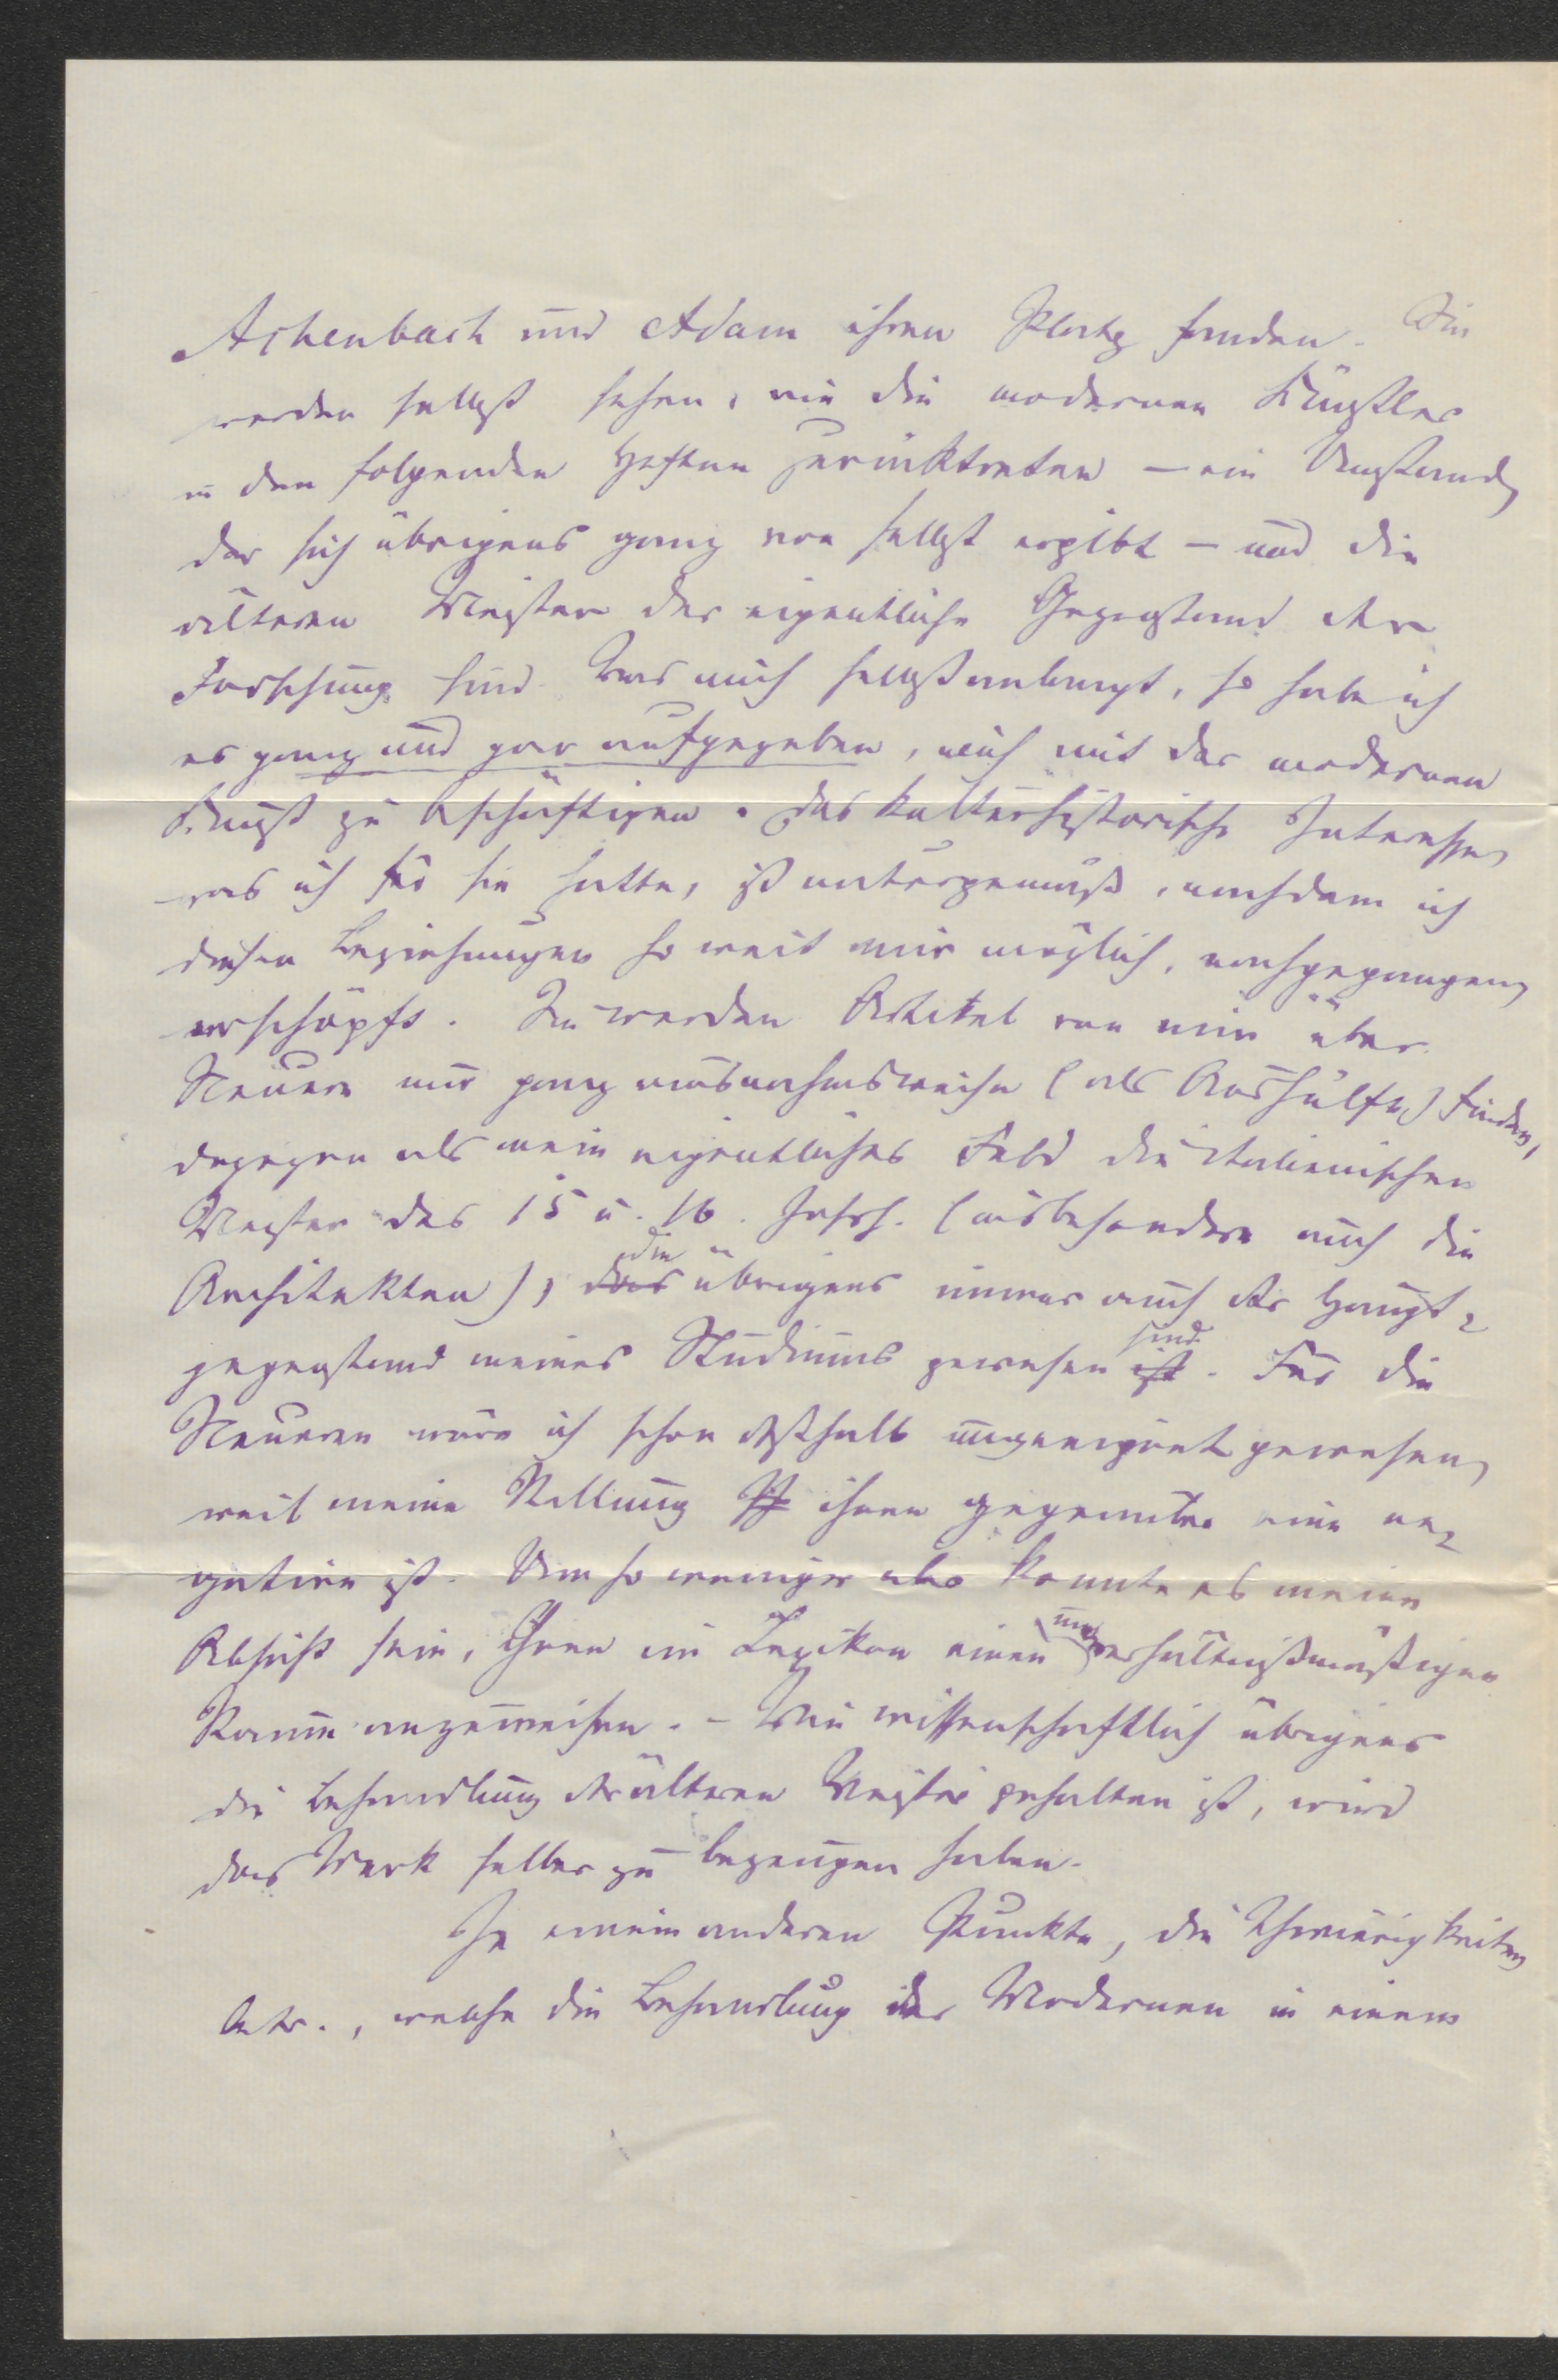 Achenbach und Adam ihren Platz fanden. Sie
werden selbst sehen, wie die modernen Künstler
in den folgenden Heften zurücktreten — ein Umstand,
der sich übrigens ganz von selbst ergibt — und die
älteren Meister der eigentliche Gegenstand der
Forschung sind. Was mich selbst anlangt, so habe ich
es ganz und gar aufgegeben, mich mit der modernen
Kunst zu beschäftigen. Das kulturhistorische Interesse,
was ich für sie hatte, ist naturgemäß, nachdem ich
diesen Beziehungen so weit mir möglich, nachgegangen,
erschöpft. Sie werden Artikel von mir über
Neuere nur ganz ausnahmsweise (als Aushülfe) finden,
dagegen als mein eigentliches Feld die italienischen
Meister des 15 u. 16. Jahrh. (insbesondere auch die
Architekten), das die übrigens immer auch der Haupt-
gegenstand meines Studiums gewesen ist sind. Für die
Neueren wäre ich schon deßhalb ungeeignet gewesen,
weil meine Stellung ihnen gegenüber eine ne-
gative ist. Um so weniger also konnte es meine
Absicht sein, ihnen im Lexikon einen unverhältnißmäßigen
Raum anzuweisen. — Wie wissenschaftlich übrigens
die Behandlung der älteren Meister gehalten ist, wird
das Werk selber zu bezeugen haben.
In einem anderen Punkte, die Schwierigkeiten
betr., welche die Behandlung der Modernen in einem